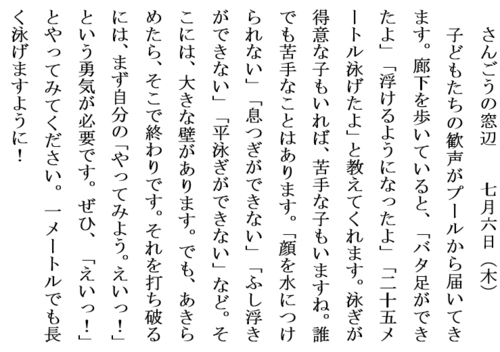 さんごうの窓辺　　七月六日（木）
　子どもたちの歓声がプールから届いてき
ます。廊下を歩いていると、「バタ足ができ
たよ」「浮けるようになったよ」「二十五メ
ートル泳げたよ」と教えてくれます。泳ぎが
得意な子もいれば、苦手な子もいますね。誰
でも苦手なことはあります。「顔を水につけ
られない」「息つぎができない」「ふし浮き
ができない」「平泳ぎができない」など。そ
こには、大きな壁があります。でも、あきら
めたら、そこで終わりです。それを打ち破る
には、まず自分の「やってみよう。えいっ！」
という勇気が必要です。ぜひ、「えいっ！」
とやってみてください。一メートルでも長
く泳げますように！